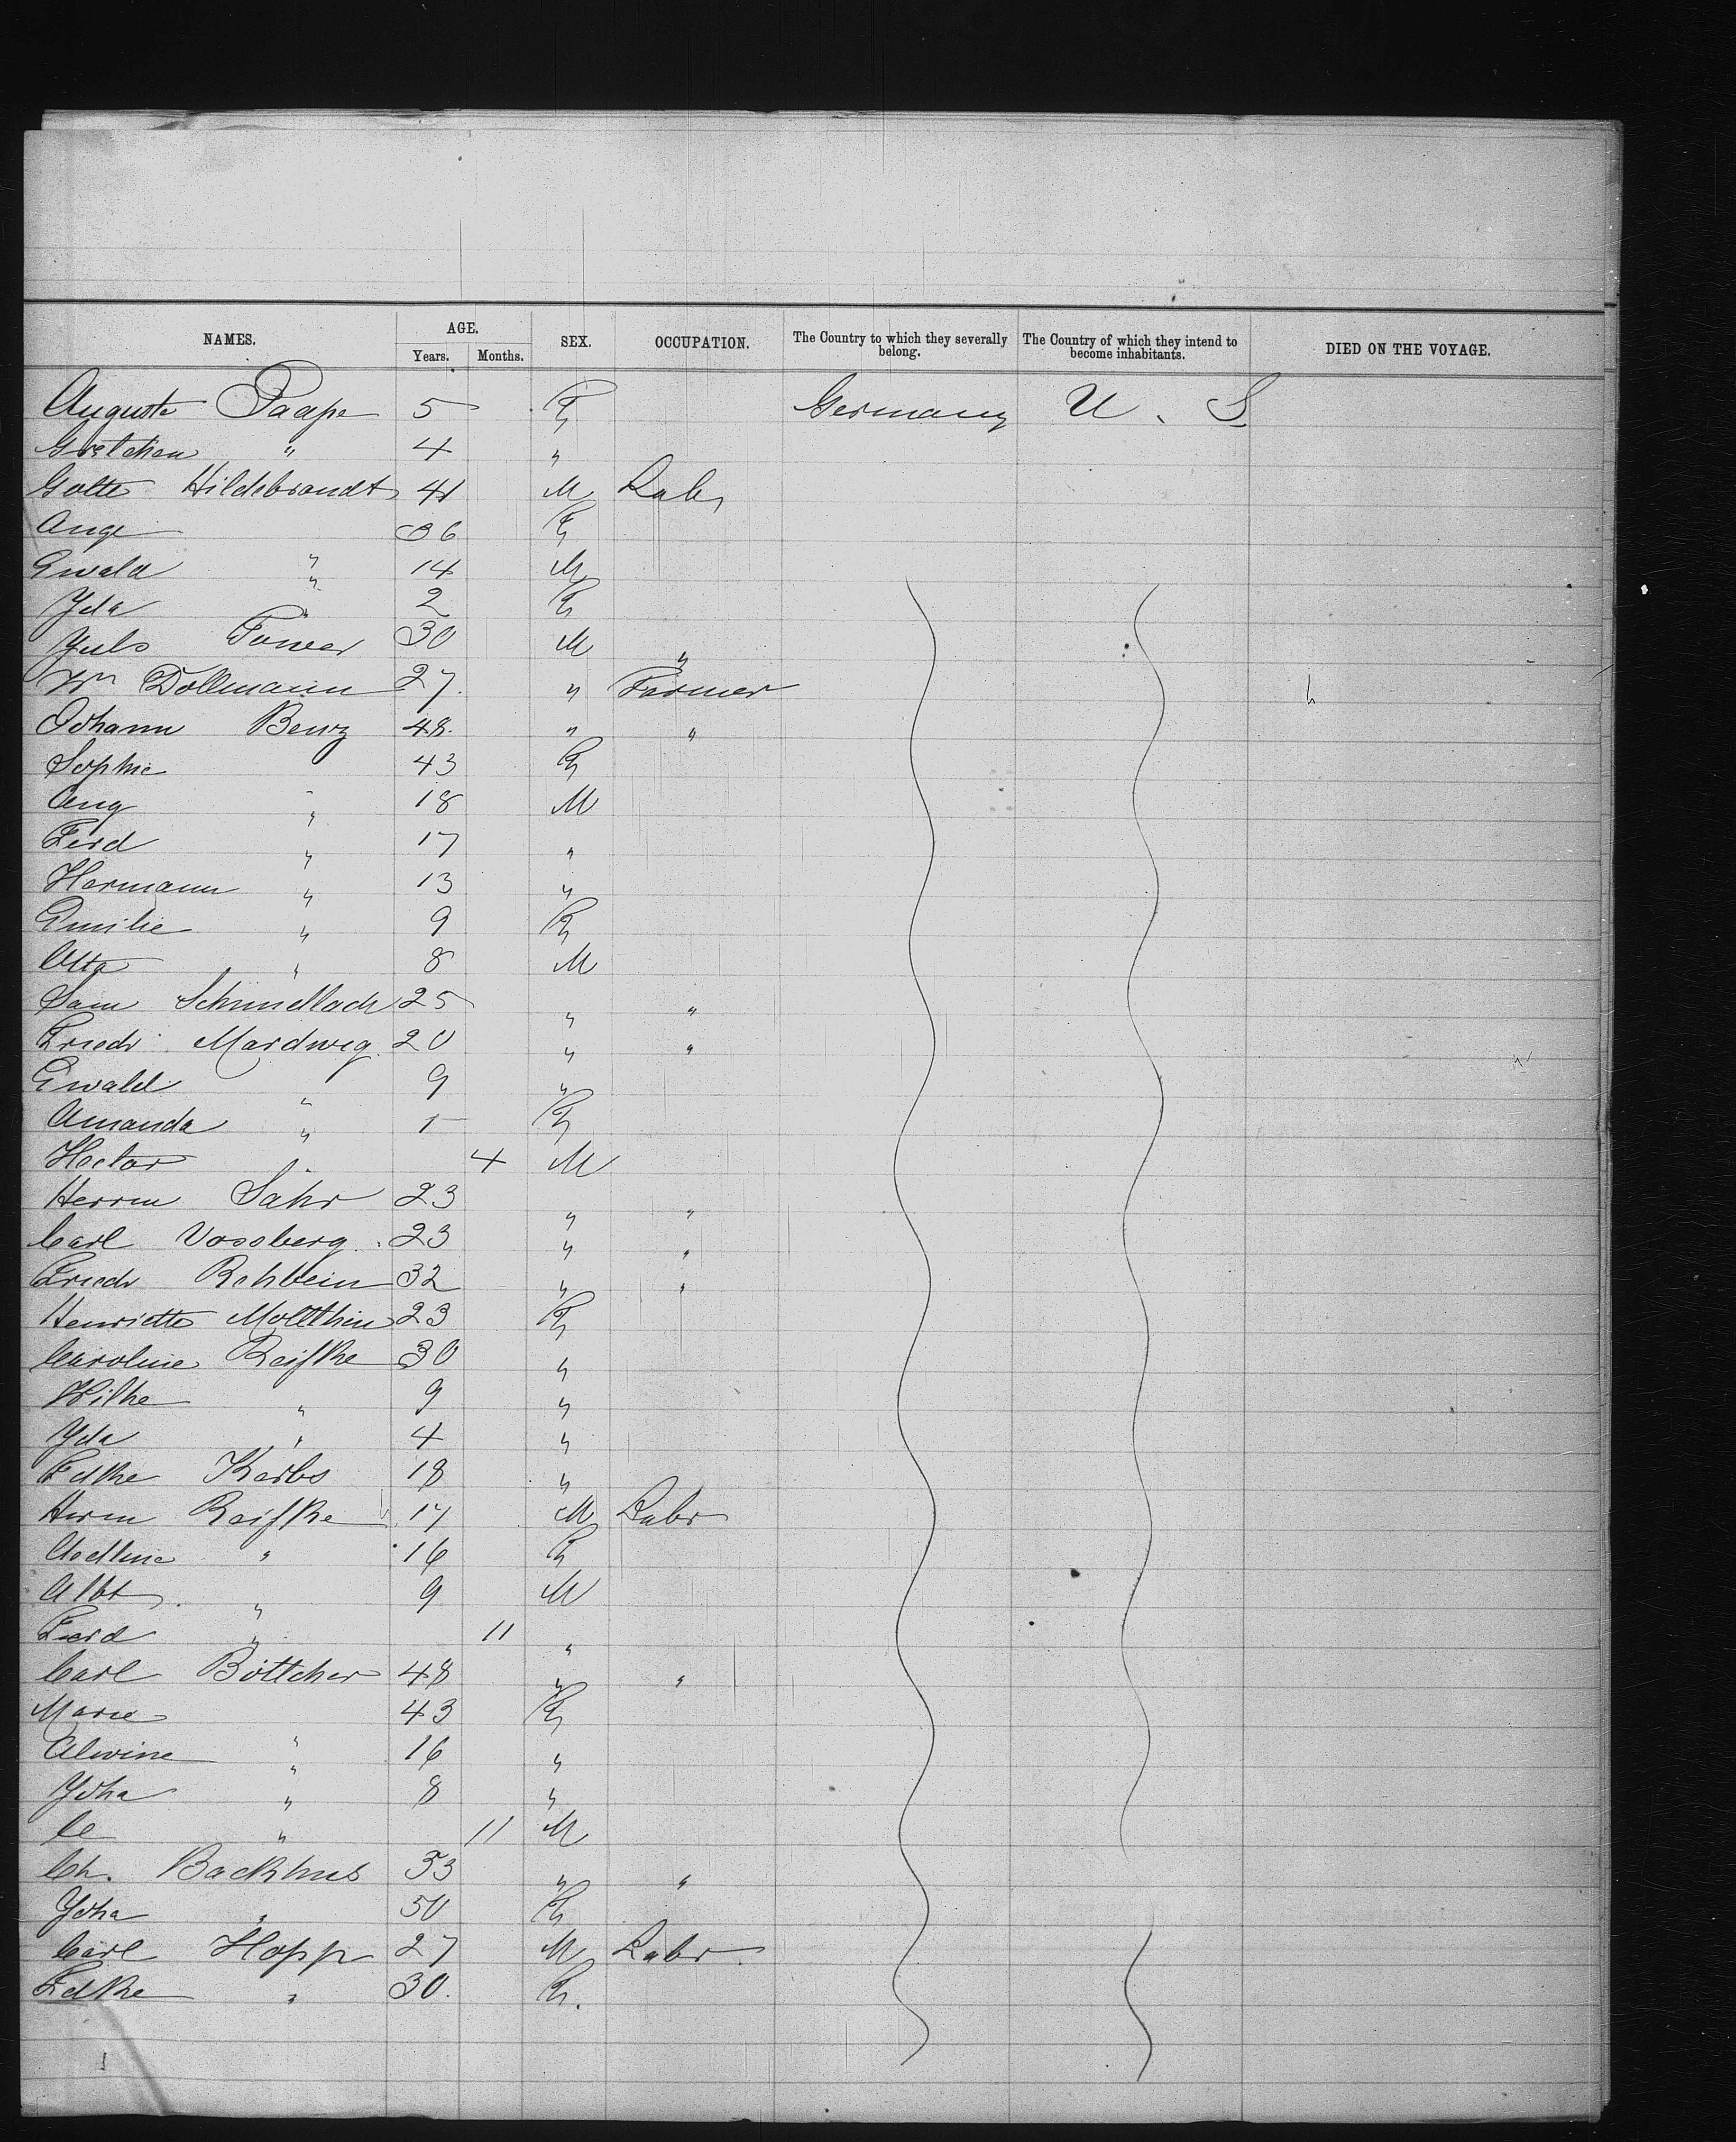 NAMES. AGE. SEX. OCCUPATION. The Country to which they severally belong. The Country of which they intend to become inhabitants. DIED ON THE VOYAGE.
Years. Months.
Auguste Paape 5 F Germany U. S
Gretchen " 4 "
Hildebrandt 41 M Labr
Aug 36 F
Ewald " 14 M
Yda " 2 F
Juls 30 M "
Wm Dollmann 27. " Farmer
Johann Benz 48. " "
Sophie 43 F
Aug " 18 M
Ferd " 17 "
Hermann " 13 "
Emilie " 9 F
Otto " 8 M
Sam 25 " "
Friedr Mardweg. 20 " "
Ewald " 9 "
Amanda " 1 F
Hector " 4 M
Herrm Sahr 23 " "
Carl Vossberg. 23 " "
Friedr Rehbein 32 " "
Henriette Mollthin 23 F
Caroline Reifke 30 "
Wilhe " 9 "
Yda " 4 "
Fdke Kerbs 18 "
Herm Reifke 17 M Labr
" 16 F
Albt. " 9 M
Ferd " 11 "
Carl Böttcher 48 " "
Marie 43 F
Alwine " 16 "
Joha " 8 "
Ce " 11 M
Ch. Backhus 53 " "
Joha " 50 F
Carl Hopp 27 M Labr
Fdke " 30. F.